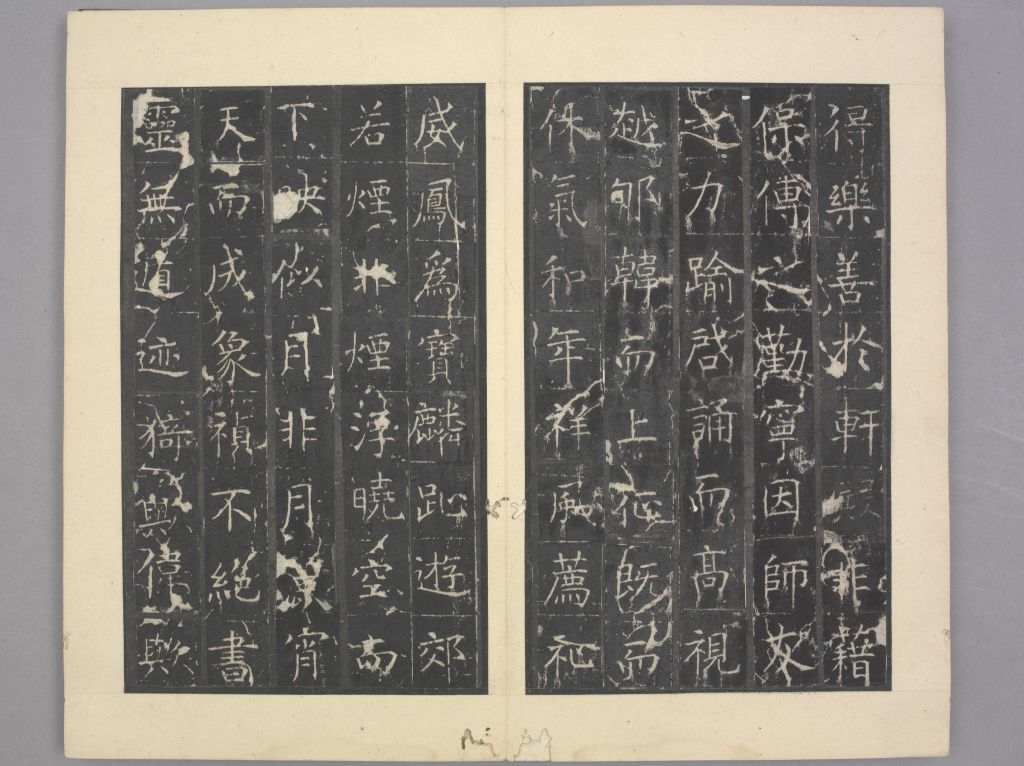 得樂善於軒非藉
保傅之勤寧因師友
之力踰啓誦而高視
韓而上征既而
休氣和年祥風薦祉
威鳳爲寶麟趾遊郊
若煙非煙浮曉空而
下映似月非月宵
天而成象禎不絕書
靈無道迹猗歟偉歟